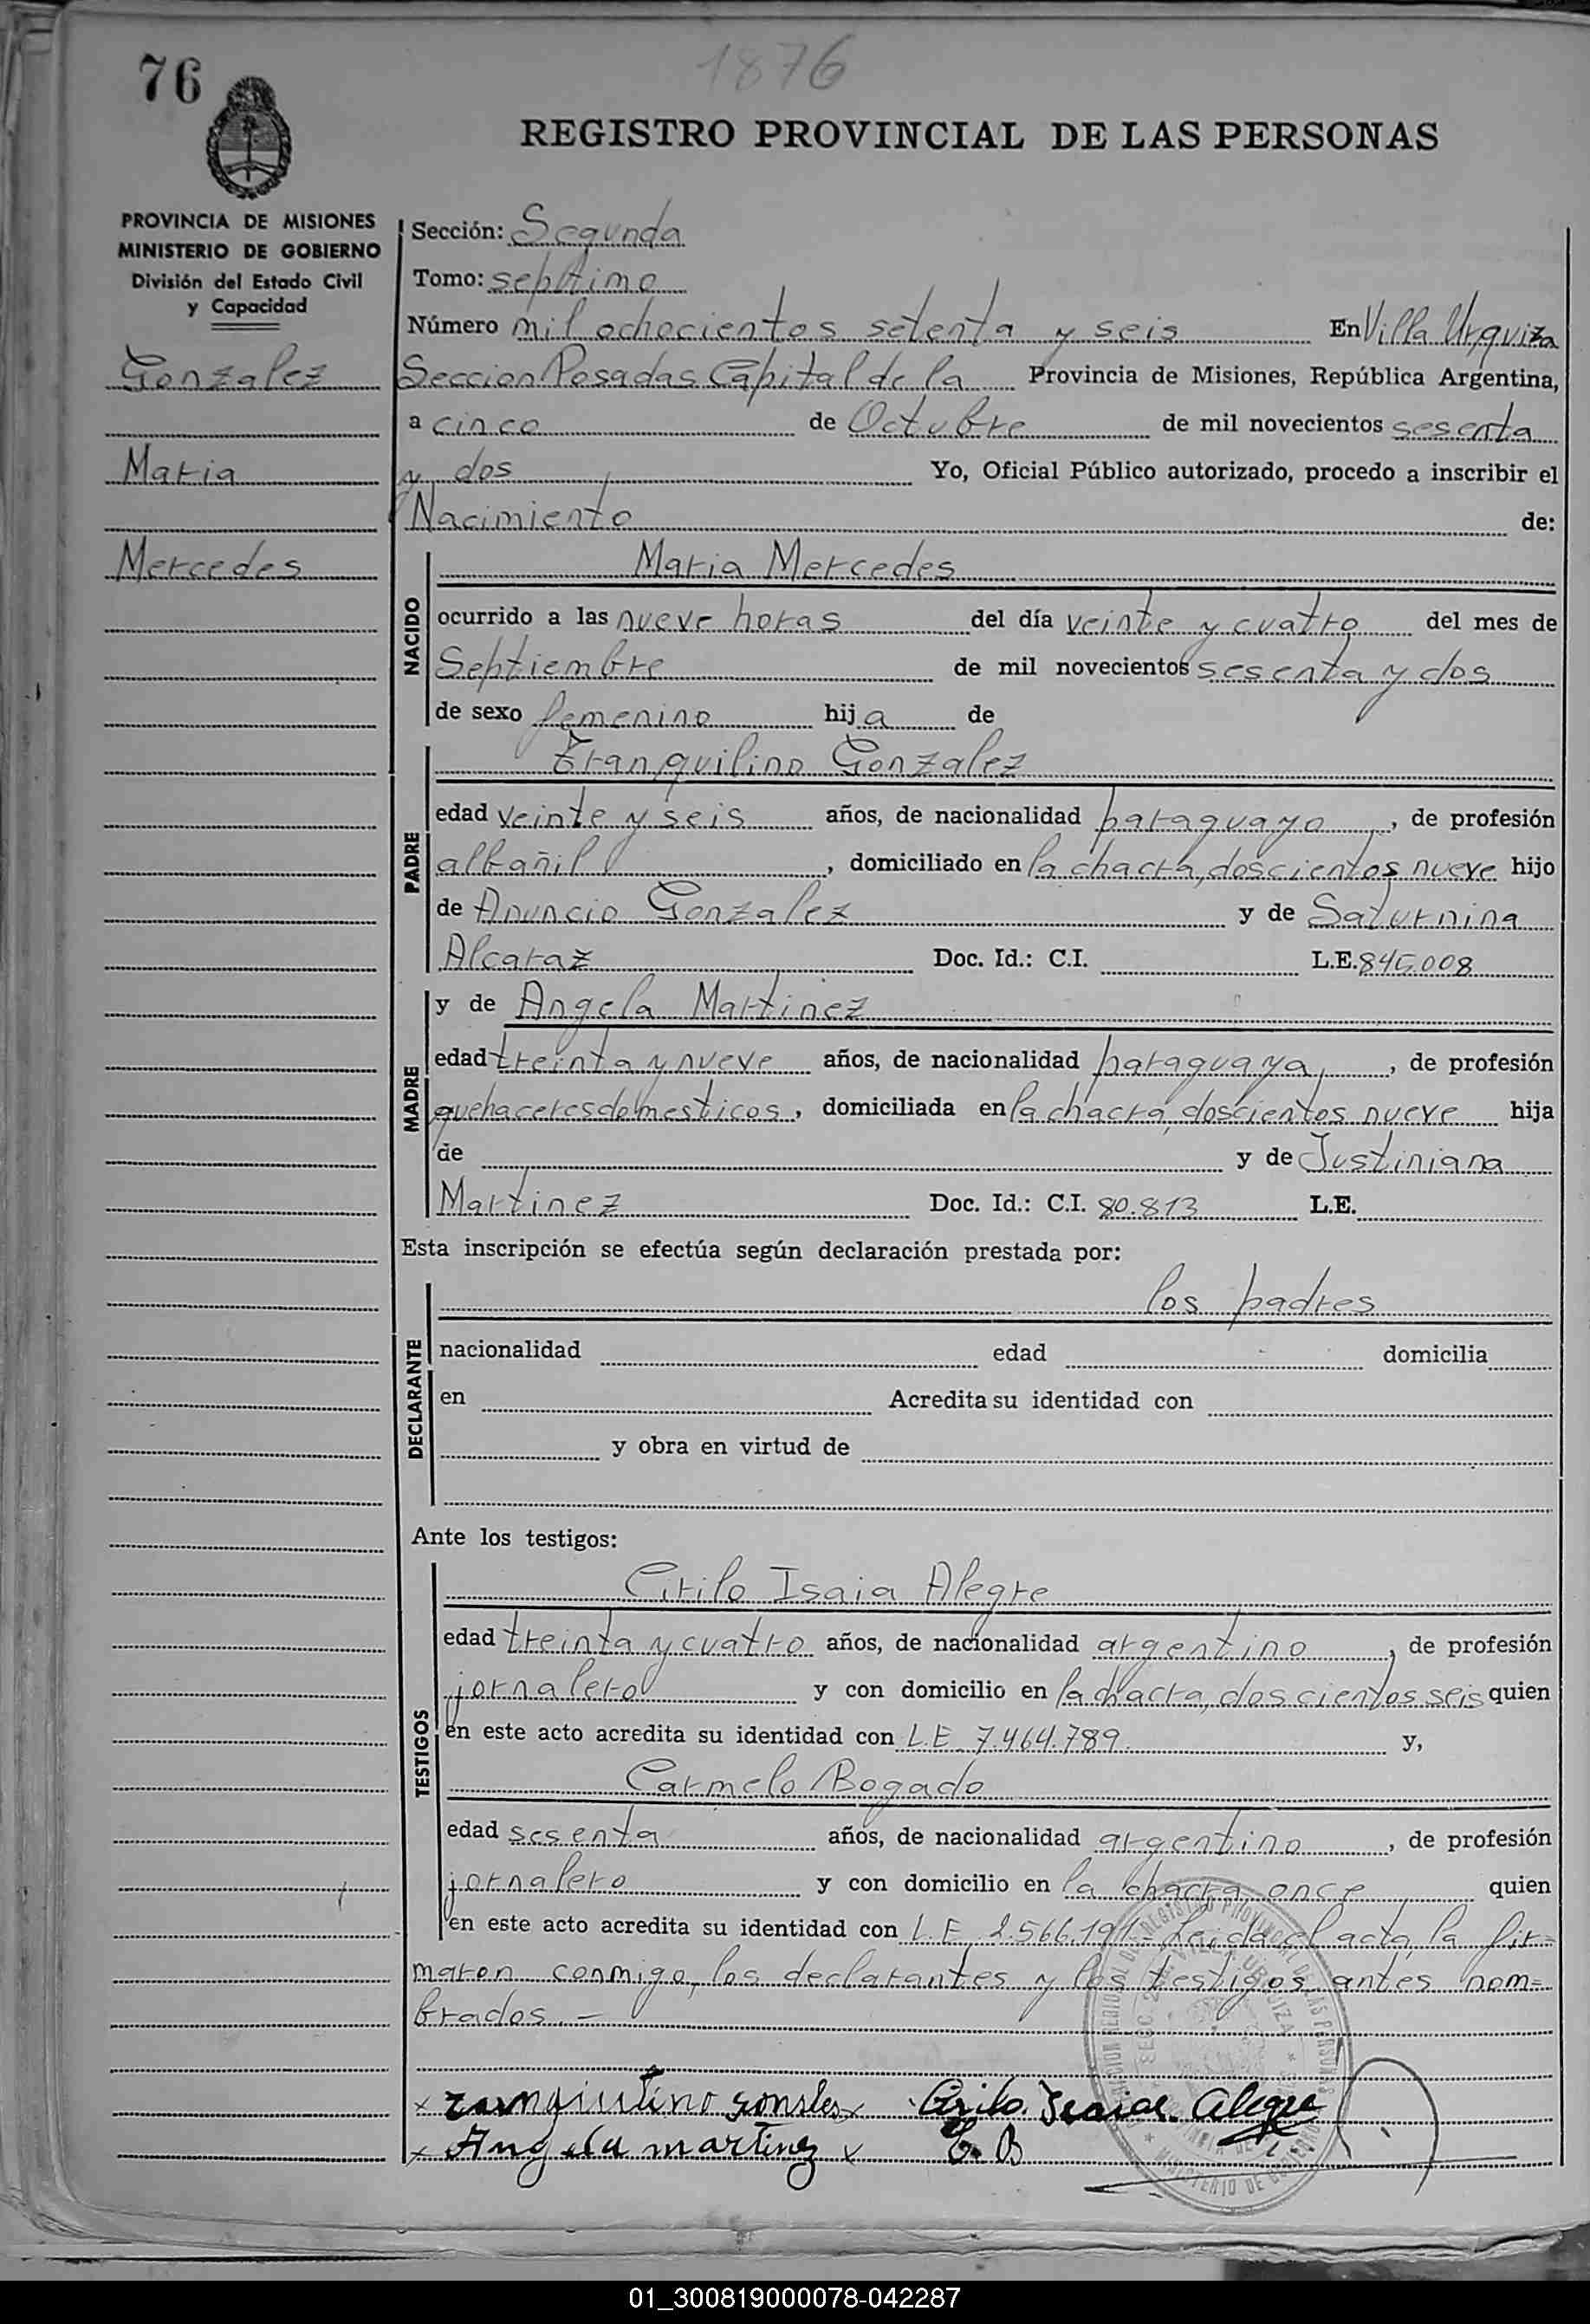 76
1876
REGISTRO PROVINCIAL DE LAS PERSONAS
PROVINCIA DE MISIONES
MINISTERIO DE GOBIERNO
División del Estado Civil
y Capacidad
Gonzalez
Maria
Mercedes
Sección: Segunda
Tomo: septimo
Número mil ochocientos setenta y seis En Villa Urquiza
Seccion Posadas Capital de la Provincia de Misiones, República Argentina,
a cinco de Octubre de mil novecientos sesenta
y dos Yo, Oficial Público autorizado, procedo a inscribir el
Nacimiento de:
NACIDO
Maria Mercedes
ocurrido a las nueve horas del día veinte y cuatro del mes de
Septiembre de mil novecientos sesenta y dos
de sexo femenino hija de
PADRE
Tranquilino Gonzalez
edad veinte y seis años, de nacionalidad paraguayo, de profesión
albañil, domiciliado en la chacra, doscientos nueve hijo
de Anuncio Gonzalez y de Saturnina
Alcaraz Doc. Id.: C.I. L.E. 845.008
MADRE
y de Angela Martinez
edad treinta y nueve años, de nacionalidad paraguaya, de profesión
quehaceres domesticos, domiciliada en la chacra doscientos nueve hija
de y de Justiniana
Martinez Doc. Id.: C.I. 80.813 L.E.
Esta inscripción se efectúa según declaración prestada por:
DECLARANTE
los padres
nacionalidad edad domicilia
en Acredita su identidad con
y obra en virtud de
Ante los testigos:
TESTIGOS
Cirilo Isaia Alegre
edad treinta y cuatro años, de nacionalidad argentino, de profesión
jornalero y con domicilio en la chacra, doscientos seis quien
en este acto acredita su identidad con L.E 7.464.789 y,
Carmelo Bogado
edad sesenta años, de nacionalidad argentino, de profesión
jornalero y con domicilio en la chacra once quien
en este acto acredita su identidad con L.E 2.566.191- Leida el acta, la fir=
maron conmigo, los declarantes y los testigos, antes nom=
brados.-
x zarngiutino gonsles x Cirilo. Isaia. Alegre
x Angela martinez x C. B
01_300819000078-042287